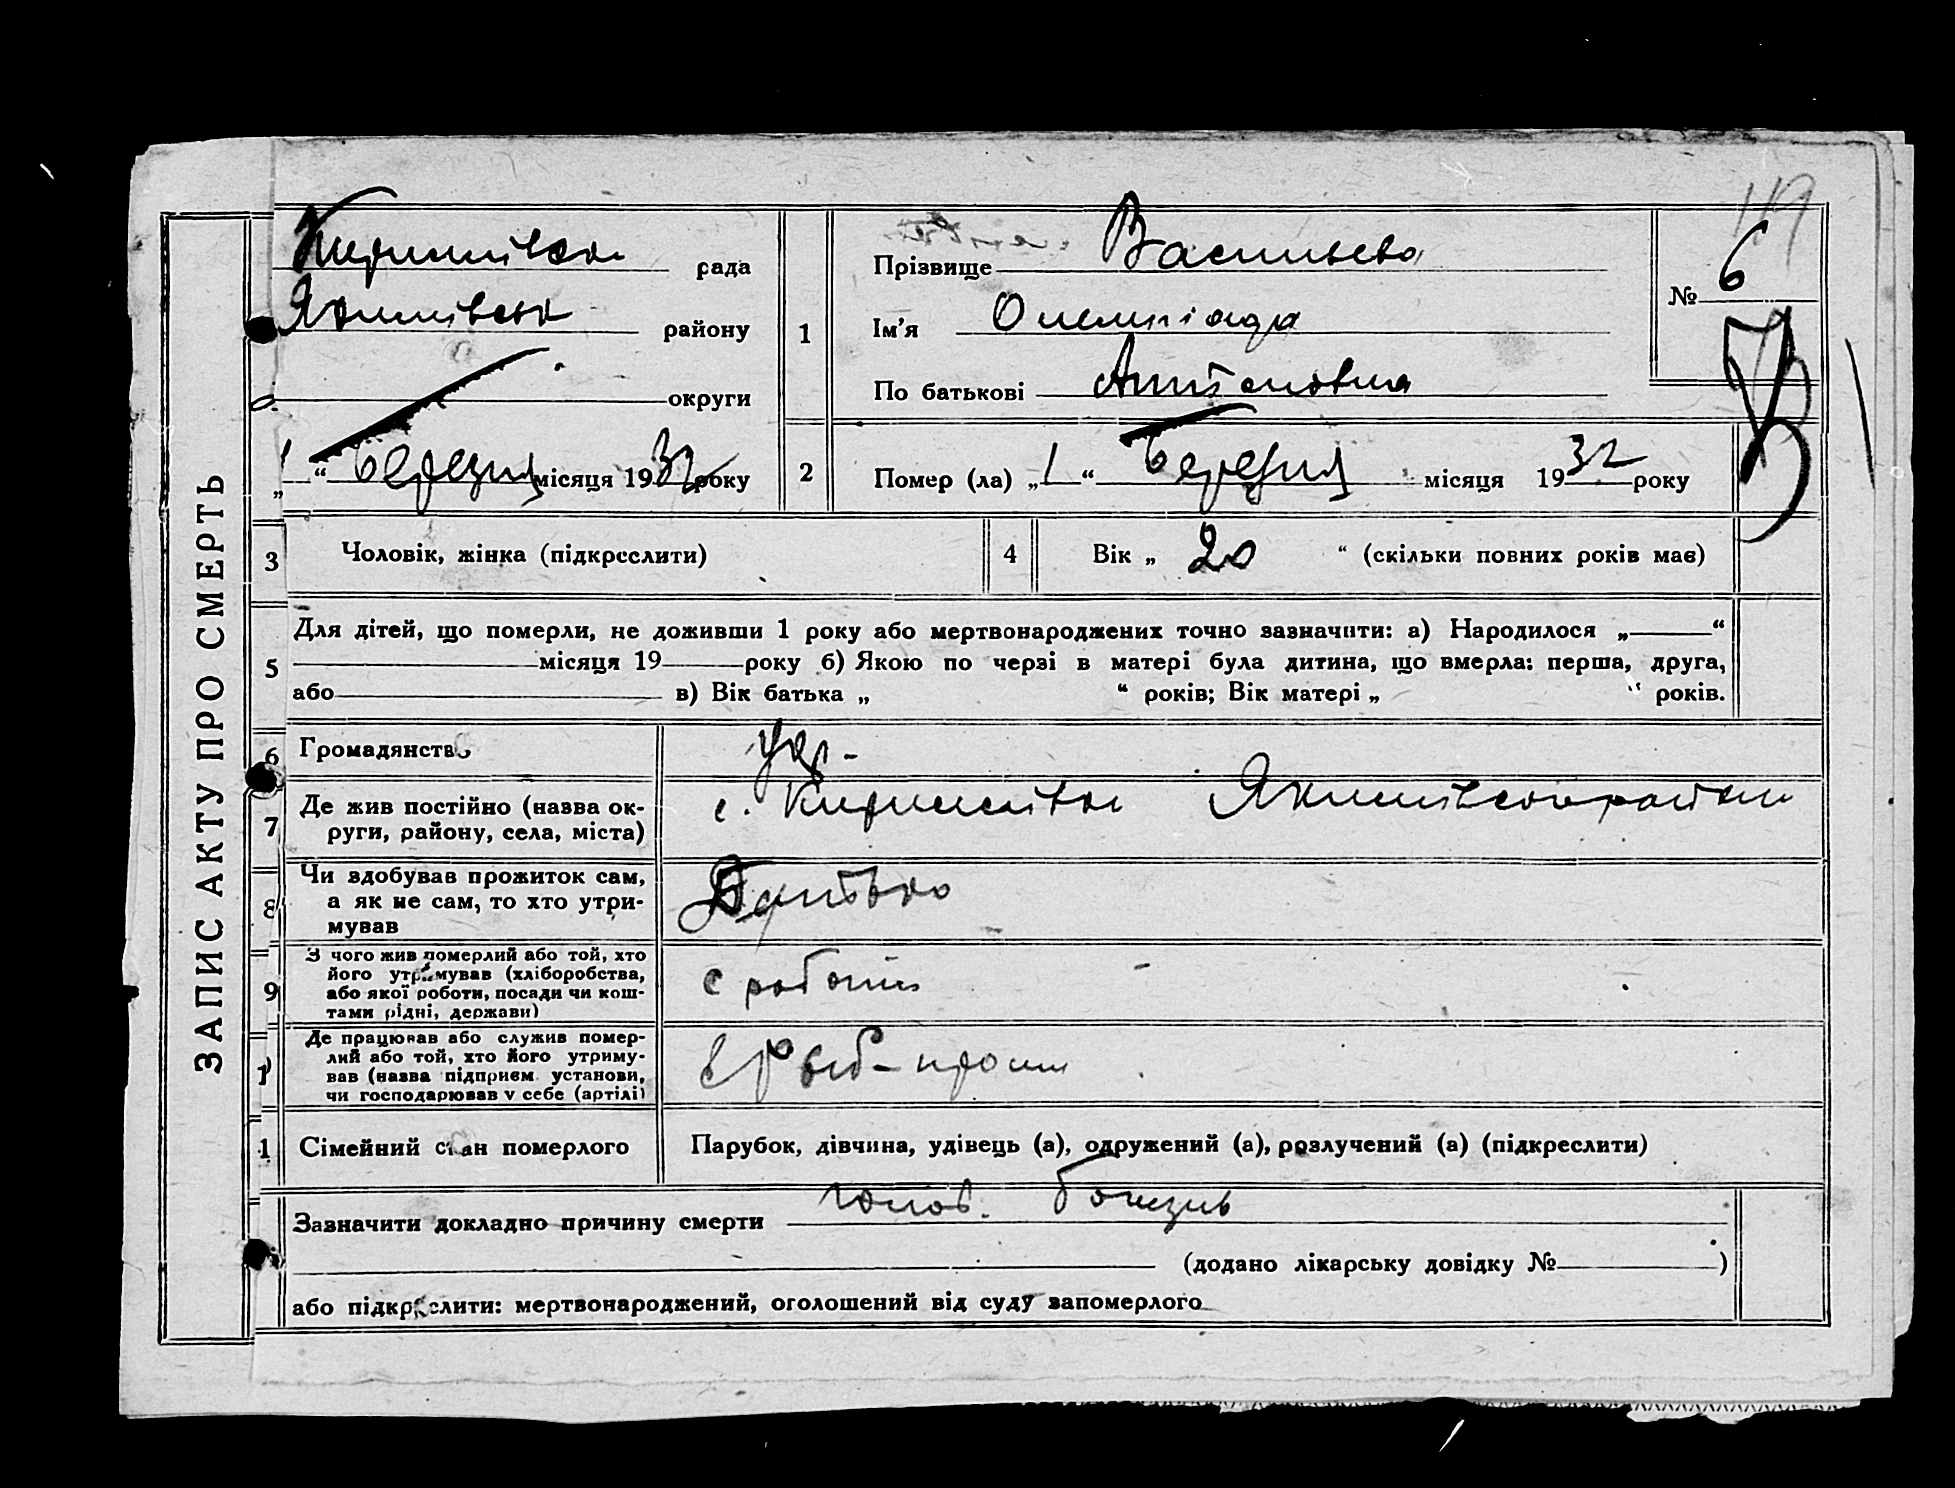 ЗАПИС АКТУ ПРО СМЕРТЬ
119
Кирилівська рада
Якимівська району
округи
„1“ Березня місяця 1932 року
1
Прізвище Васильева
Ім'я Олемпіада
По батькові Антоновна
№ 6
2
Помер (ла) „1“ Березня місяця 1932 року
3 Чоловік, жінка (підкреслити)
4 Вік „ 20 “ (скільки повних років має)
5 Для дітей, що померли, не доживши 1 року або мертвонароджених точно зазначити: а) Народилося „ “
місяця 19 року б) Якою по черзі в матері була дитина, що вмерла: перша, друга,
або в) Вік батька „ “ років; Вік матері „ “ років.
6 Громадянство укр.
7 Де жив постійно (назва ок-
руги, району, села, міста)
с. Кирилівка Якимівського району
8 Чи здобував прожиток сам,
а як не сам, то хто утри-
мував
Батько
9 З чого жив померлий або той, хто
його утримував (хліборобства,
або якої роботи, посади чи кош-
тами рідні, держави)
с работи
1 Де працював або служив помер-
лий або той, хто його утриму-
вав (назва підприєм. установи,
чи господарював у себе (артілі)
в Рыб-пром
1 Сімейний стан померлого
Парубок, дівчина, удівець (а), одружений (а), розлучений (а) (підкреслити)
Зазначити докладно причину смерти голов. болезнь
(додано лікарську довідку № )
або підкреслити: мертвонароджений, оголошений від суду запомерлого